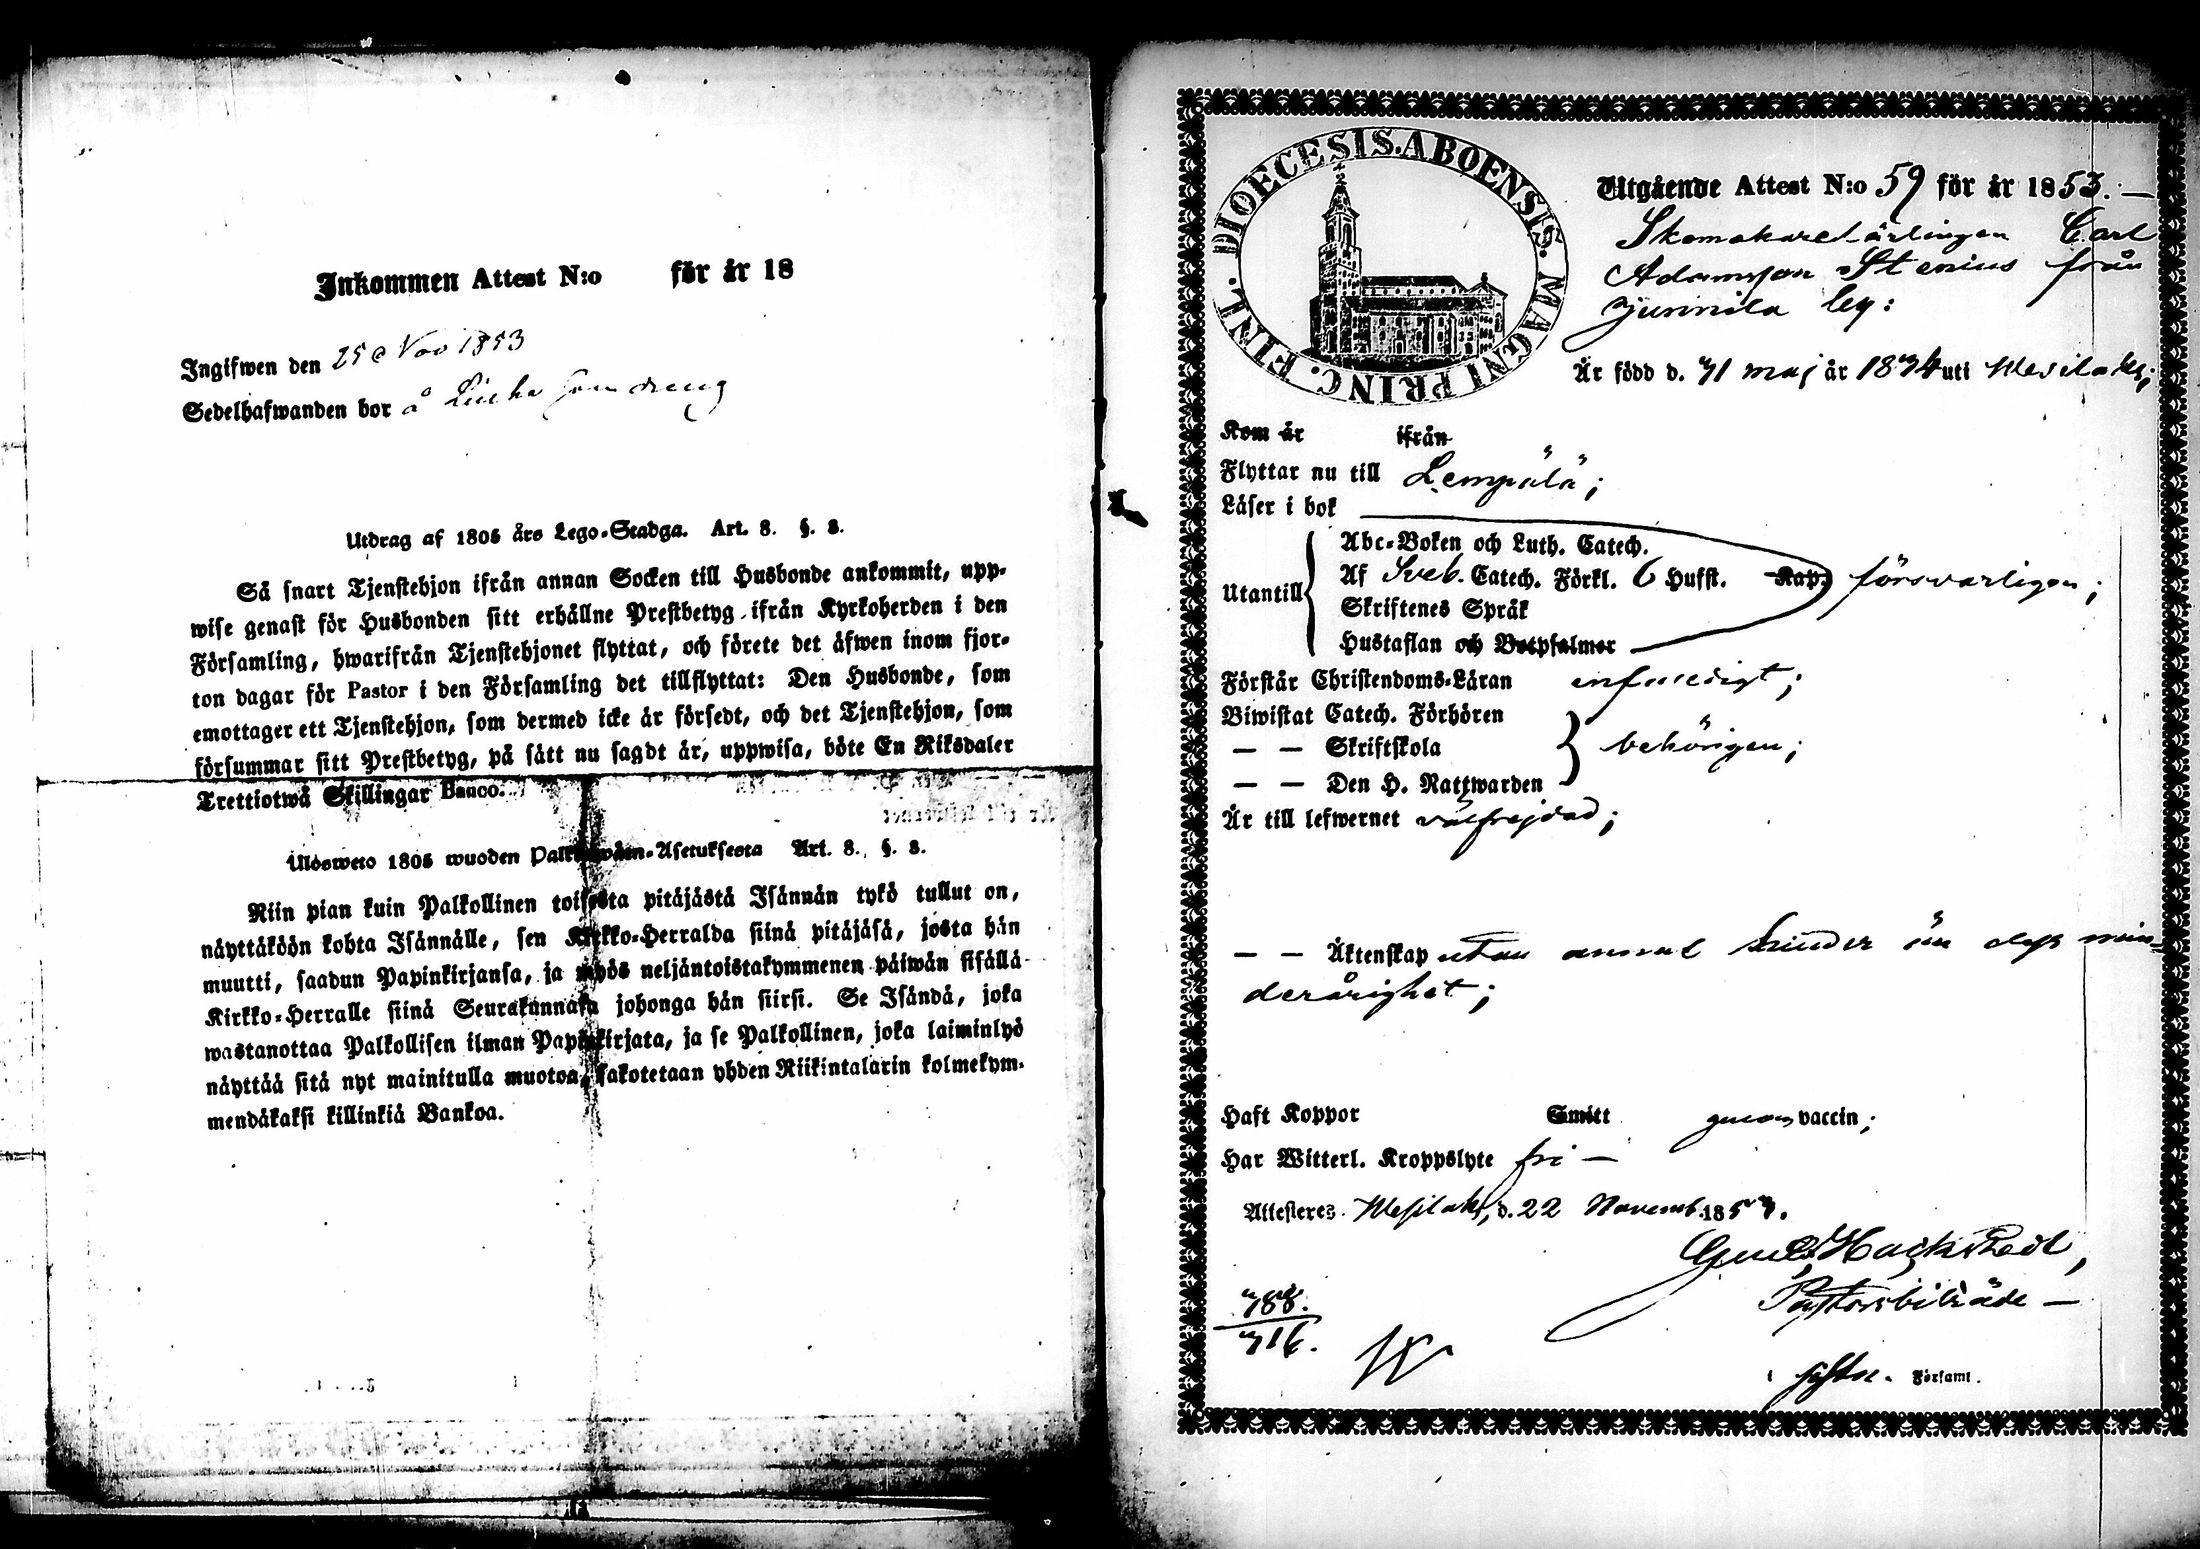 Inkommen Attest N:o för år 18
Ingifwen den 25 Nov 1853
Sedelhafwanden bor å
Utdrag af 1805 års Lego-Stadga. Art. 8. §. 8.
Så snart Tjenstehjon ifrån annan Socken till Husbonde ankommit, upp-
wise genast för Husbonden sitt erhållne Prestbetyg ifrån Kyrkoherden i den
Församling, hwarifrån Tjenstehjonet flyttat, och förete det äfwen inom fjor-
ton dagar för Pastor i den Församling det tillflyttat: Den Husbonde, som
emottager ett Tjenstehjon, som dermed icke är försedt, och det Tjenstehjon, som
försummar sitt Prestbetyg, på sätt nu sagdt är, uppwisa, böte En Riksdaler
Trettiotwå Skillingar Banco.
Ulosweto 1805 wuoden Palkkawäen-Asetuksesta Art. 8. §. 8.
Niin pian kuin Palkollinen toisesta pitäjästä Isännän tykö tullut on,
näyttäköön kohta Isännälle, sen Kirkko-Herralda siinä pitäjäsä, josta hän
muutti, saadun Papinkirjansa, ja myös neljäntoistakymmenen päiwän sisällä
Kirkko-Herralle siinä Seurakunnasa johonga hän siirsi. Se Isändä, joka
wastanottaa Palkollisen ilman Papinkirjata, ja se Palkollinen, joka laiminlyö
näyttää sitä nyt mainitulla muotoa, sakotetaan yhden Riikintalarin kolmekym-
mendäkaksi killinkiä Bankoa.
DIOECESIS. ABOENSIS. MAGNI PRINC. FINL.
Utgående Attest N:o 59 för år 1853.
Skomakarelärlingen Carl
Adamsson Stenius från
Junnila by:
Är född d. 31 maj år 1834 uti Wesilaks;
Kom år ifrån
Flyttar nu till Lempälä;
Läser i bok
Abc-Boken och Luth. Catech.
Utantill Af Sveb. Catech. Förkl. 6 Hufst. Kap. försvarligen;
Skriftenes Språk
Hustaflan och Botpsalmer
Förstår Christendoms-Läran enfaldigt;
Biwistat Catech. Förhören
— — Skriftskola behörigen;
— — Den H. Nattwarden
Är till lefwernet välfrejdad;
— — Äktenskap utan annat hinder än dess min-
derårighet;
Haft Koppor Smitt genom vaccin;
Har Witterl. Kroppslyte fri —
Attesteras Wesilaks, d. 22 Novemb. 1853.
Hackstedt,
Pastorsbiträde —
788.
316.
i Församl.